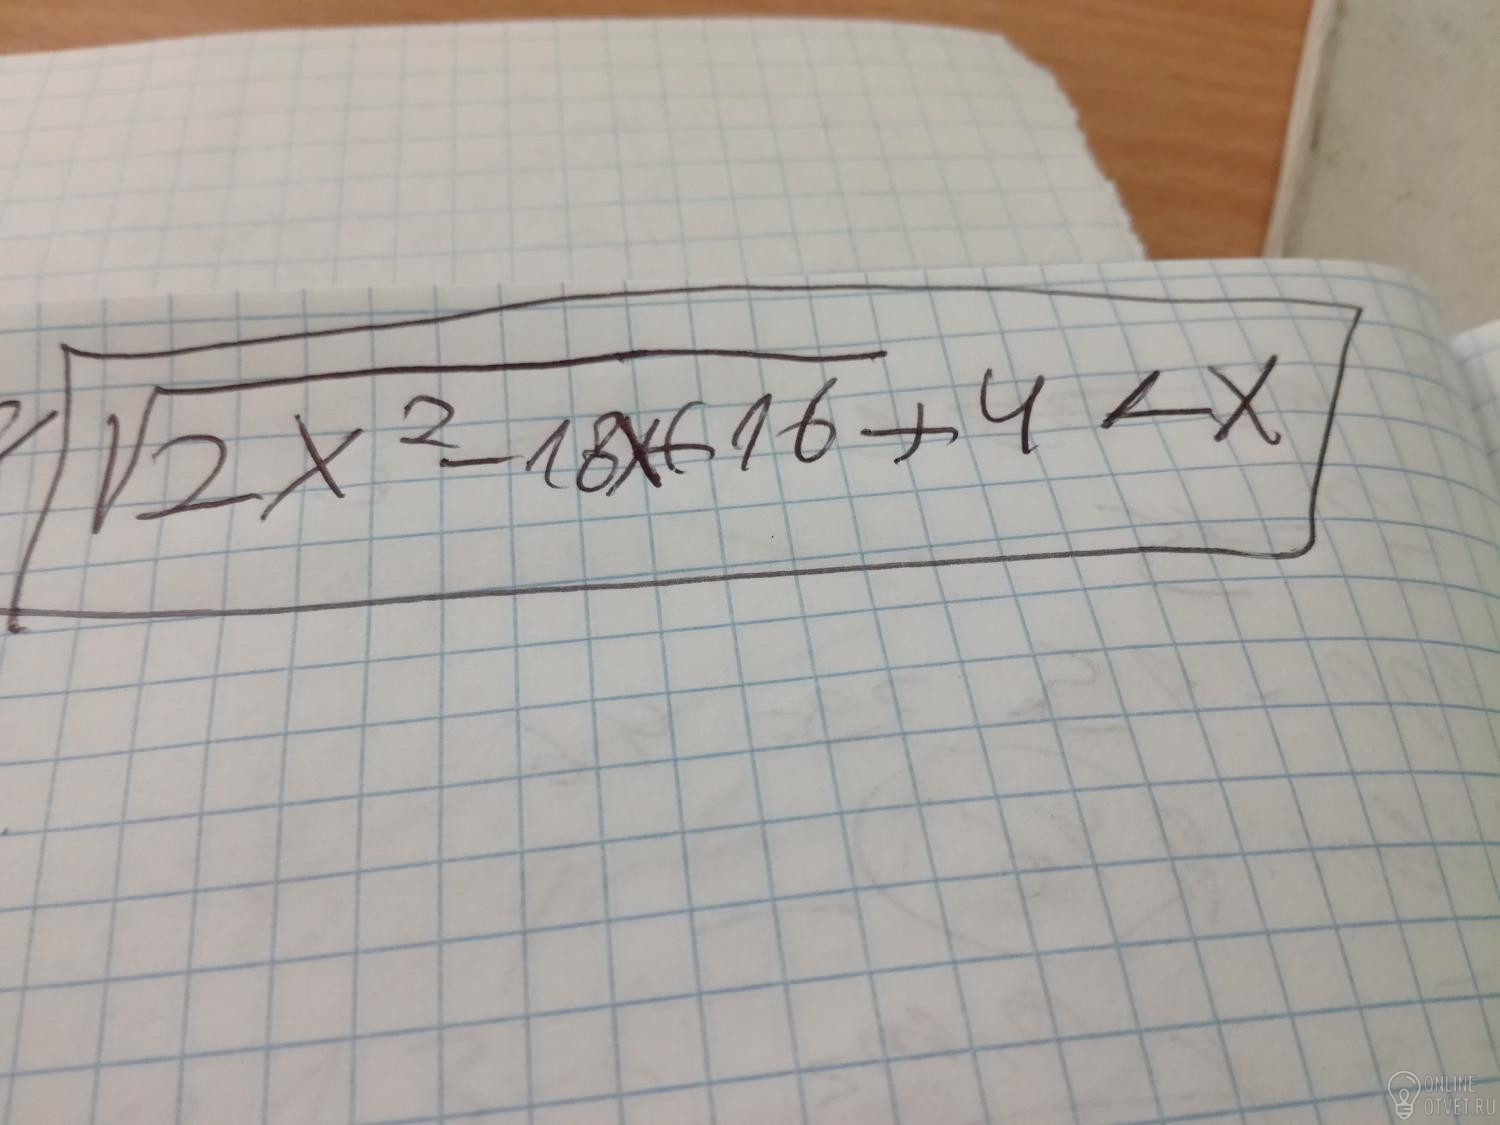 √2x²-18x+16 + 4 < x
ONLINE
OTVET.RU